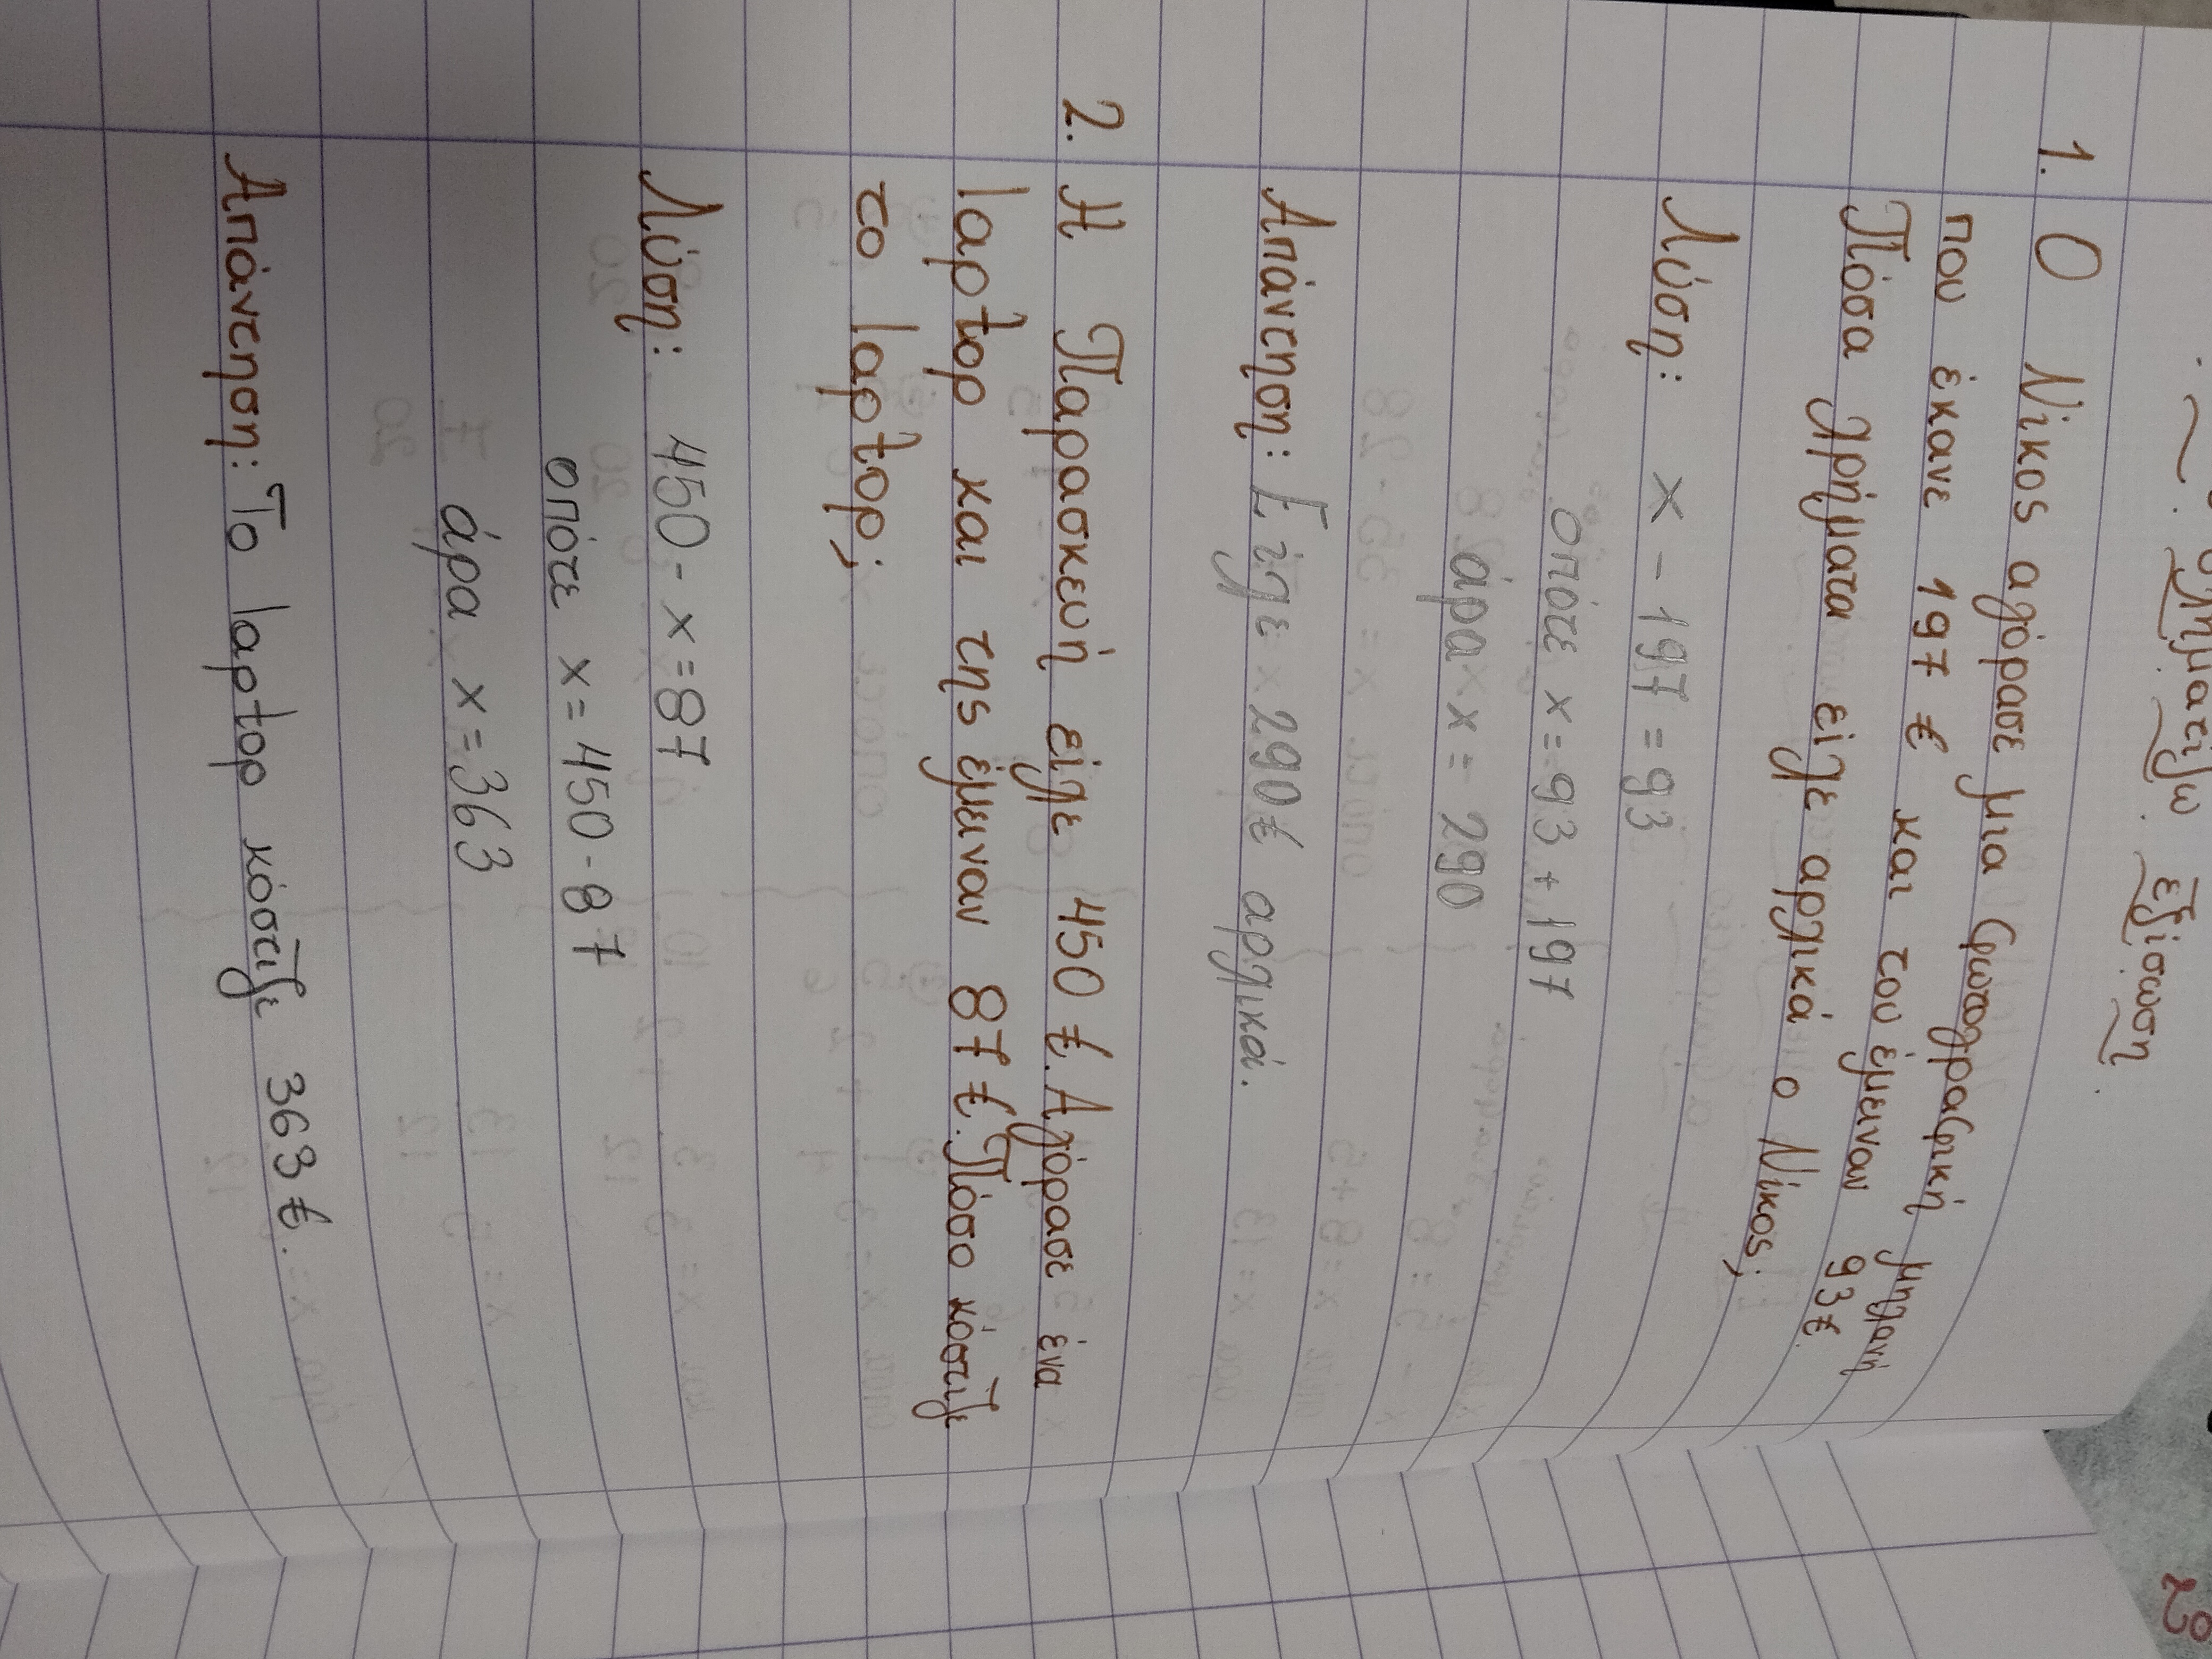 εξίσωση.
1. Ο Νίκος αγόρασε μια φωτογραφική μηχανή
που έκανε 197 € και του έμειναν 93€.
Πόσα χρήματα είχε αρχικά ο Νίκος;
Λύση: x - 197 = 93
οπότε x = 93 + 197
άρα x = 290
Απάντηση: Είχε 290€ αρχικά.
2. Η Παρασκευή είχε 450 €. Αγόρασε ένα
laptop και της έμειναν 87 €. Πόσο κόστιζε
το laptop;
Λύση: 450 - x = 87
οπότε x = 450 - 87
άρα x = 363
Απάντηση: Το laptop κόστιζε 363 €.